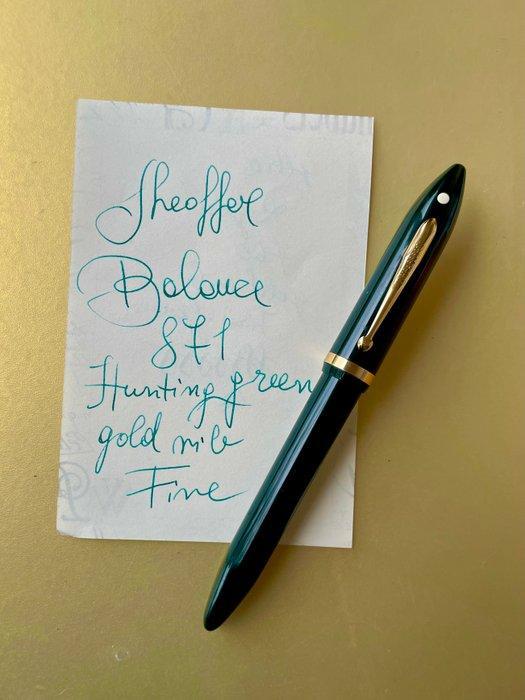 Sheaffer
Balance
871
Hunting green
gold nib
Fine